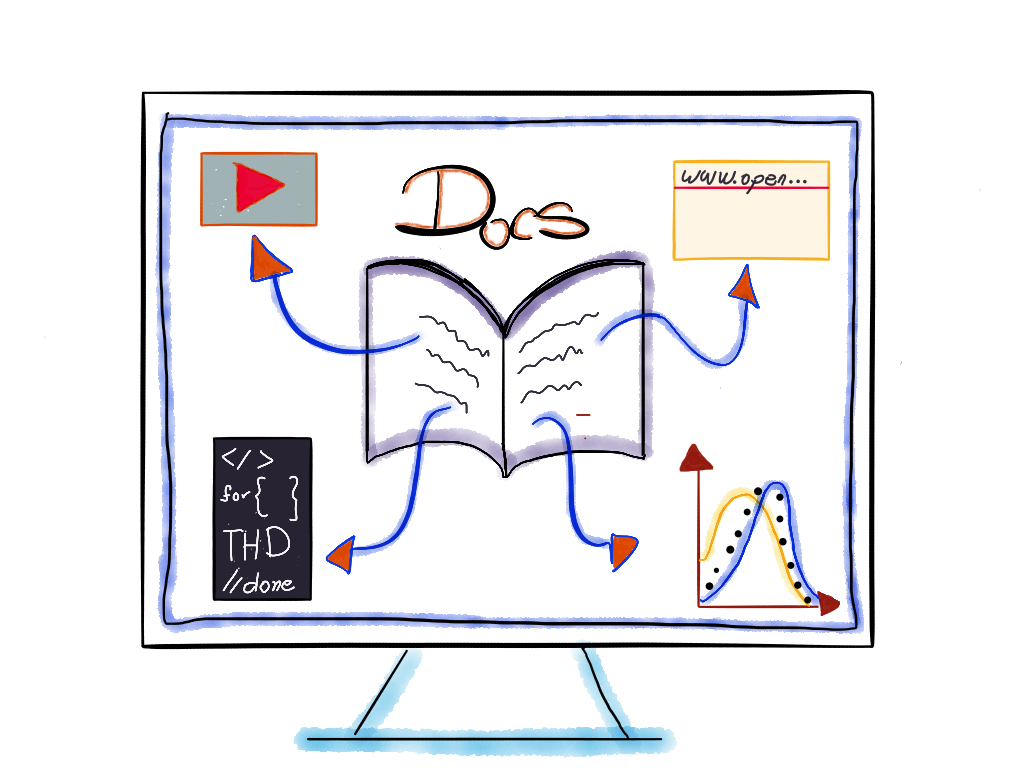 Docs
www.open...
</>
for{ }
THD
//done